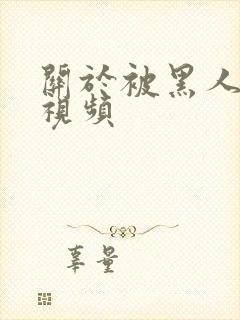 關於被黑人
視頻
辜量